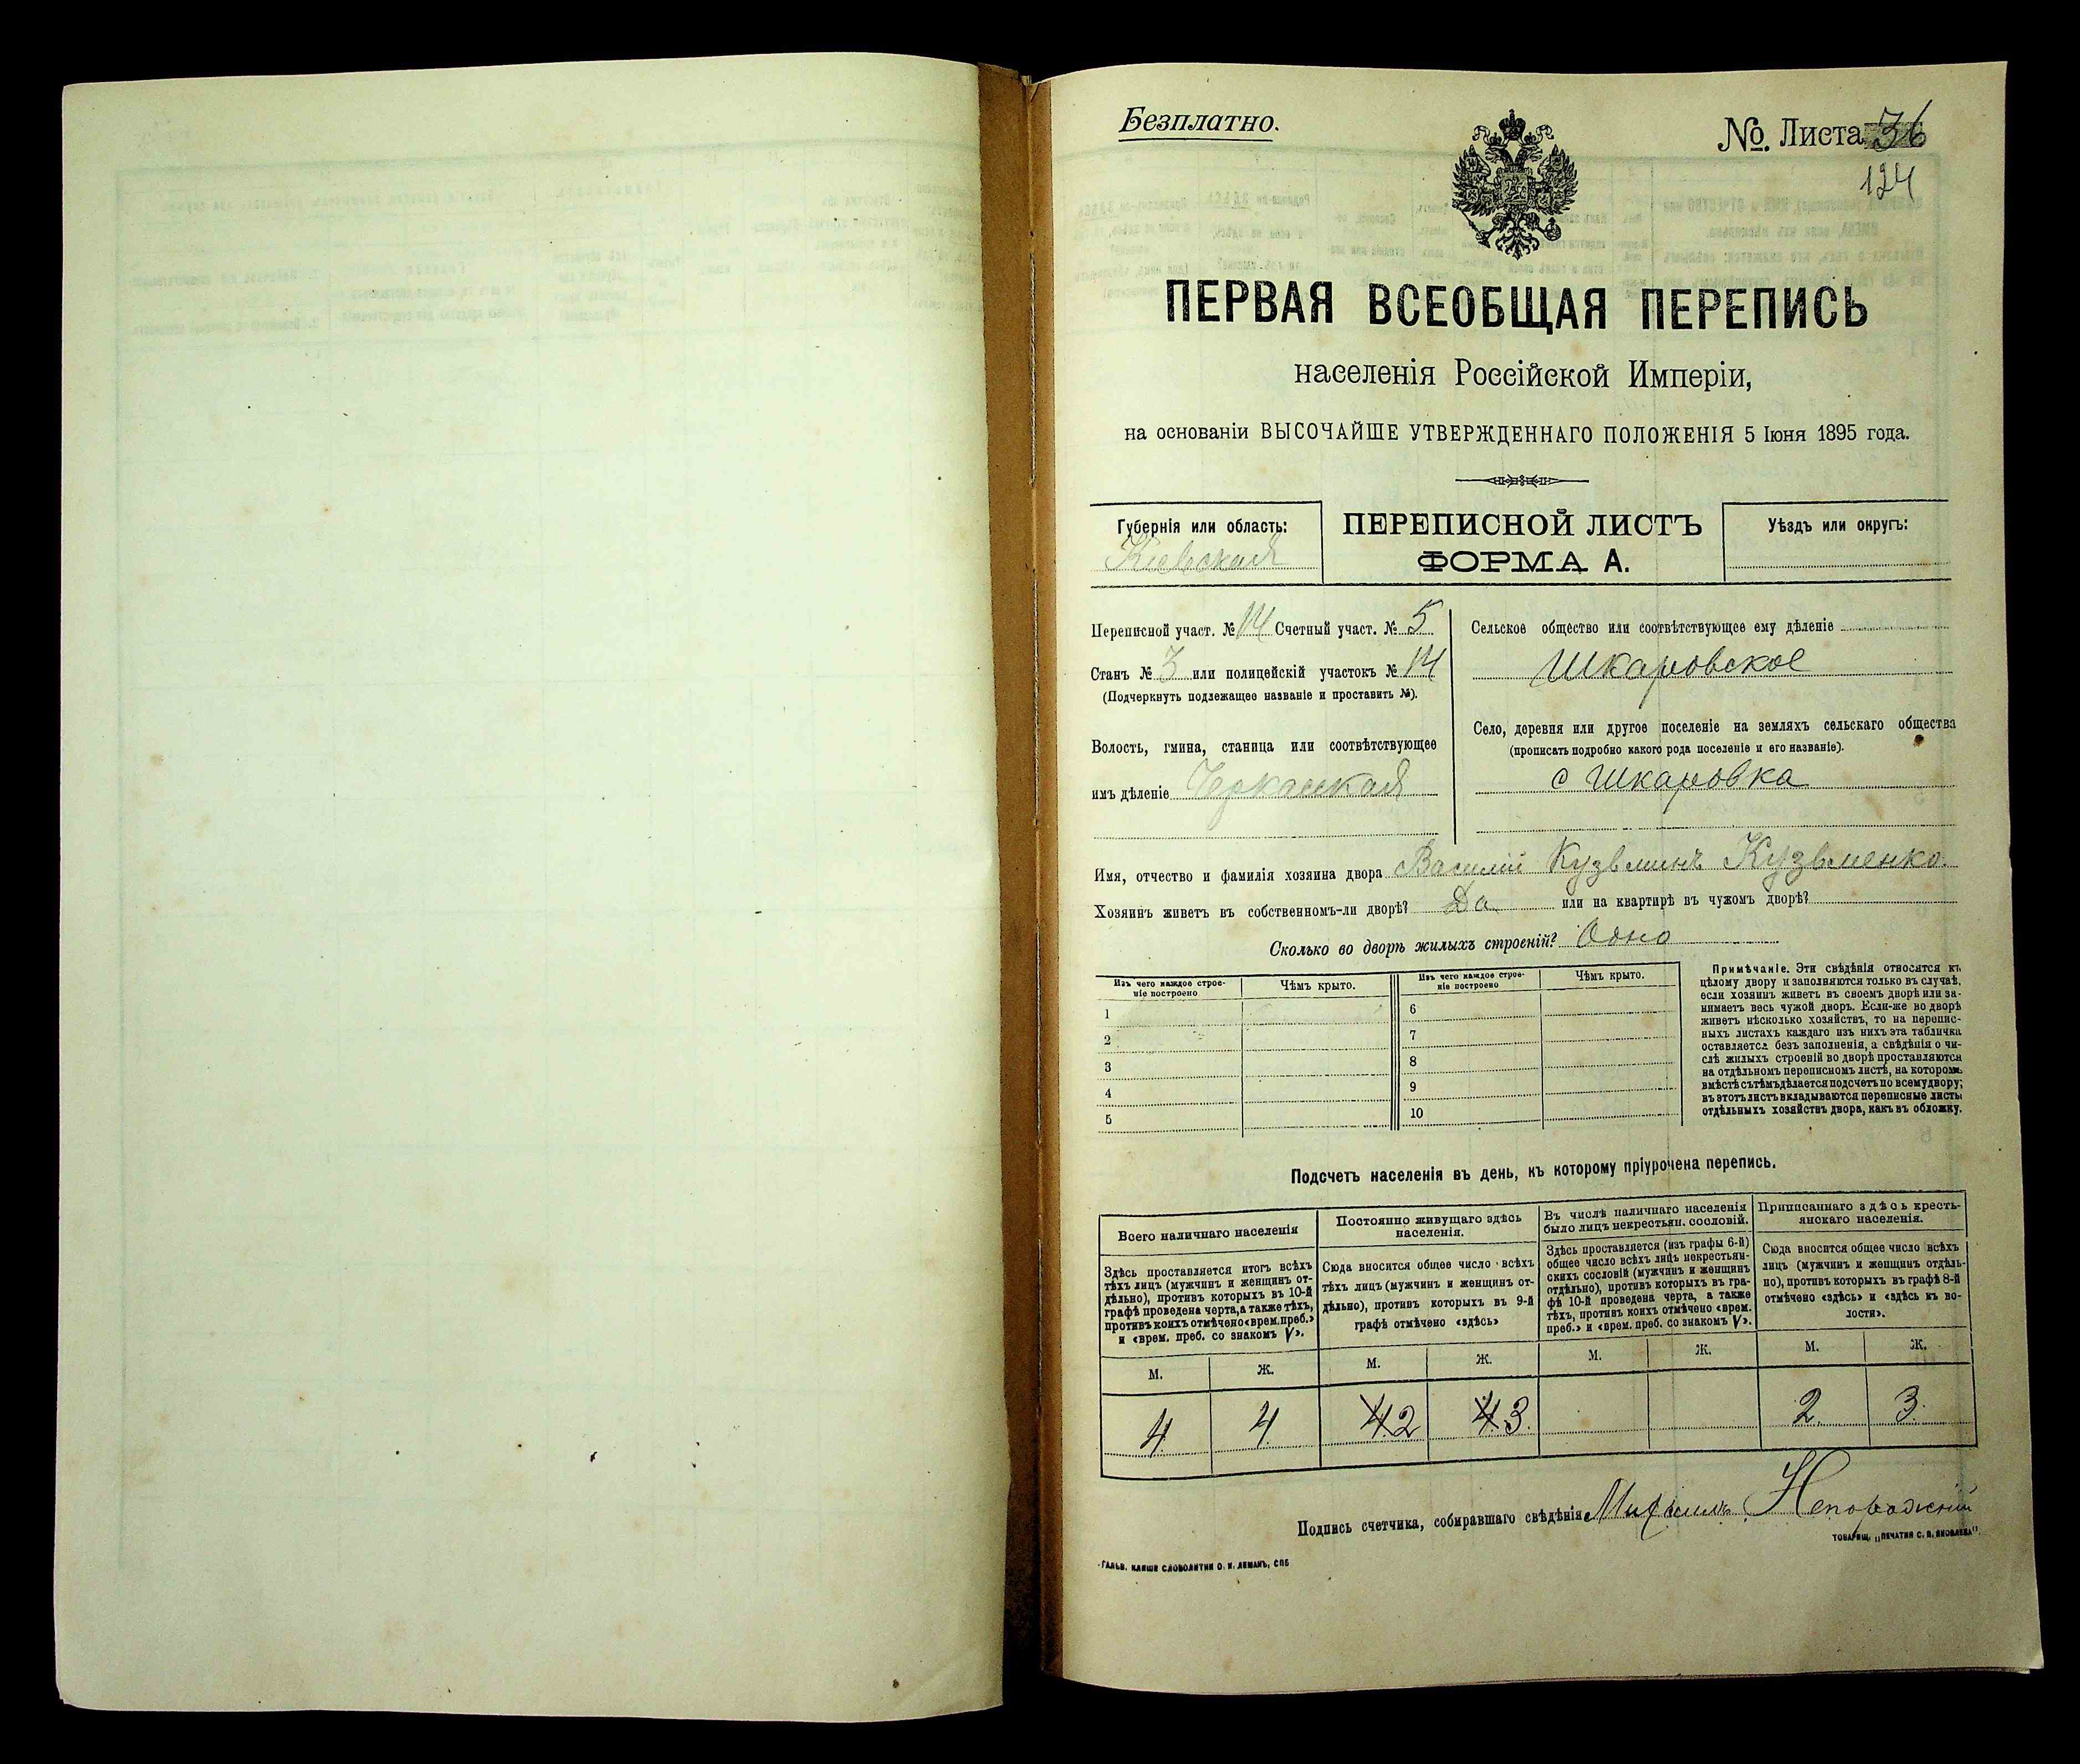 Безплатно.
№. Листа 36
124
ПЕРВАЯ ВСЕОБЩАЯ ПЕРЕПИСЬ
населенія Россійской Имперіи,
на основаніи ВЫСОЧАЙШЕ УТВЕРЖДЕННАГО ПОЛОЖЕНІЯ 5 Іюня 1895 года.
Губернія или область:
Кіевская
ПЕРЕПИСНОЙ ЛИСТЪ
ФОРМА А.
Уѣздъ или округъ:
Переписной участ. № 14 Счетный участ. № 5
Станъ № 3 или полицейскій участокъ № 14
(Подчеркнуть подлежащее названіе и проставить №).
Волость, гмина, станица или соотвѣтствующее
имъ дѣленіе Черкасская
Сельское общество или соотвѣтствующее ему дѣленіе
Шкаровское
Село, деревня или другое поселеніе на земляхъ сельскаго общества
(прописать подробно какого рода поселеніе и его названіе).
с Шкаровка
Имя, отчество и фамилія хозяина двора Василій Кузьминъ Кузьменко.
Хозяинъ живетъ въ собственномъ-ли дворѣ? Да или на квартирѣ въ чужомъ дворѣ?
Сколько во дворѣ жилыхъ строеній? Одно
Изъ чего каждое строе-
ніе построено
Чѣмъ крыто.
Изъ чего каждое строе-
ніе построено
Чѣмъ крыто.
1
2
3
4
5
6
7
8
9
10
Примѣчаніе. Эти свѣдѣнія относятся къ
цѣлому двору и заполняются только въ случаѣ,
если хозяинъ живетъ въ своемъ дворѣ или за-
нимаетъ весь чужой дворъ. Если-же во дворѣ
живетъ нѣсколько хозяйствъ, то на перепис-
ныхъ листахъ каждаго изъ нихъ эта табличка
оставляется безъ заполненія, а свѣдѣнія о чи-
слѣ жилыхъ строеній во дворѣ проставляются
на отдѣльномъ переписномъ листѣ, на которомъ
вмѣстѣ съ тѣмъ дѣлается подсчетъ по всему двору;
въ этотъ листъ вкладываются переписные листы
отдѣльныхъ хозяйствъ двора, какъ въ обложку.
Подсчетъ населенія въ день, къ которому пріурочена перепись.
Всего наличнаго населенія
Здѣсь проставляется итогъ всѣхъ
тѣхъ лицъ (мужчинъ и женщинъ от-
дѣльно), противъ которыхъ въ 10-й
графѣ проведена черта, а также тѣхъ,
противъ коихъ отмѣчено «врем. преб.»
и «врем. преб. со знакомъ V».
Постоянно живущаго здѣсь
населенія.
Сюда вносится общее число всѣхъ
тѣхъ лицъ (мужчинъ и женщинъ от-
дѣльно), противъ которыхъ въ 9-й
графѣ отмѣчено «здѣсь»
Въ числѣ наличнаго населенія
было лицъ некрестьян. сословій.
Здѣсь проставляется (изъ графы 6-й)
общее число всѣхъ лицъ некрестьян-
скихъ сословій (мужчинъ и женщинъ
отдѣльно), противъ которыхъ въ гра-
фѣ 10-й проведена черта, а также
тѣхъ, противъ коихъ отмѣчено «врем.
преб.» и «врем. преб. со знакомъ V».
Приписаннаго здѣсь кресть-
янскаго населенія.
Сюда вносится общее число всѣхъ
лицъ (мужчинъ и женщинъ отдѣль-
но), противъ которыхъ въ графѣ 8-й
отмѣчено «здѣсь» и «здѣсь къ во-
лости».
М. Ж. М. Ж. М. Ж. М. Ж.
4 4 4 2 4 3. 2 3.
Подпись счетчика, собиравшаго свѣдѣнія
ТОВАРИЩ. „ПЕЧАТНЯ С. П. ЯКОВЛЕВА“.
ГАЛЬВ. КЛИШЕ СЛОВОЛИТНИ О. И. ЛЕМАНЪ, СПБ